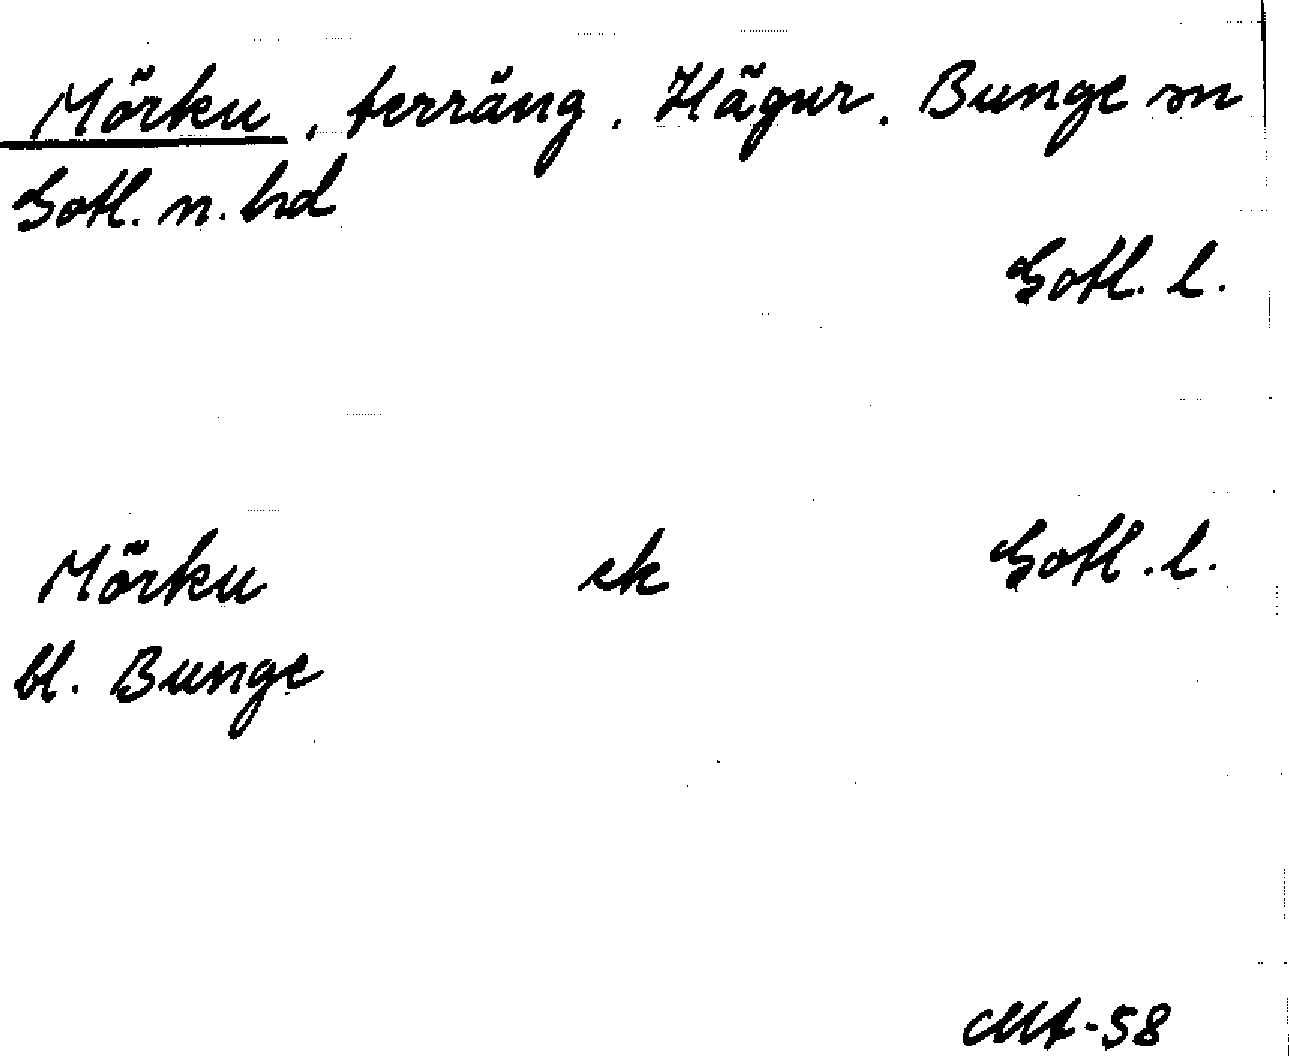 Mörku, terräng, Hägur, Bunge sn
Gotl. n. hd
Gotl. l.
Mörku ek Gotl. l.
bl. Bunge
-58